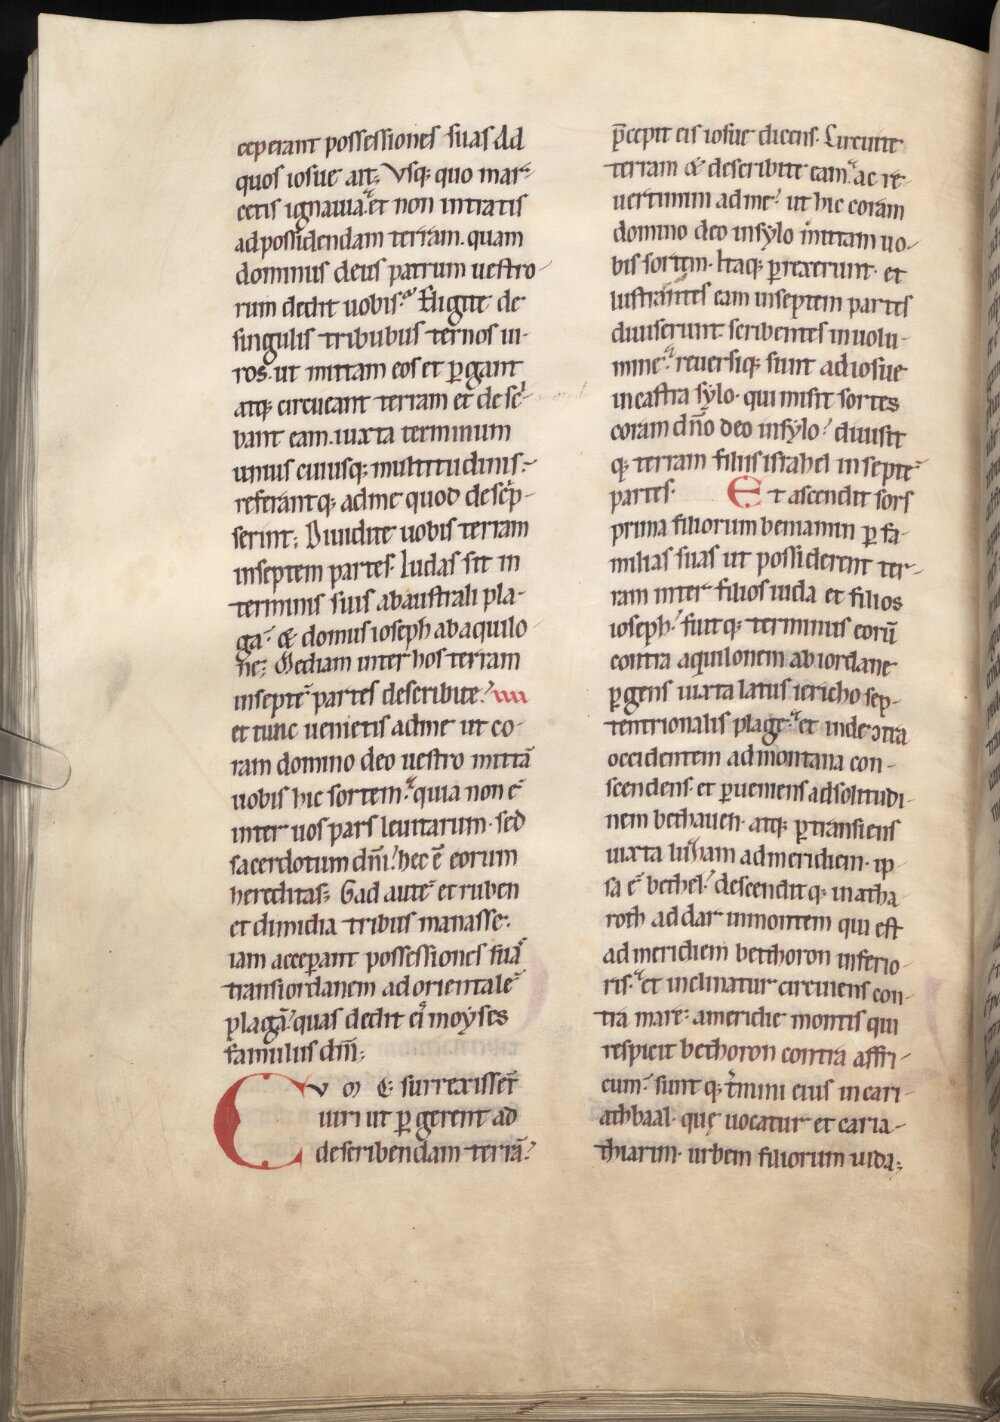 ceperant possessiones suas Ad
quos iosue ait; Vsq; quo mar-
cetis ignauia et non intratis
adpossidendam terram. quam
dominus deus patrum uestro-
rum dedit uobis? Eligite de
singulis tribubus ternos ui-
ros. ut mittam eos et ꝑgant
atq; circueant terram et desc̓-
bant eam. iuxta terminum
unius cuiusq; multitudinis:-
referantq; adme quod descͥp-
serint; Diuidite uobis terram
inseptem partes. Iudas sit in
terminis suis abaustrali pla-
ga: & domus ioseph abaquilo-
ne; Mediam inter hos terram
inseptē partes describite: IIII
et tunc uenietis adme ut co-
ram domino deo uestro mittā
uobis hic sortem: quia non ē
inter uos pars leuitarum. sed
sacerdotum dn̄i: hec ē eorum
hereditas; Gad autē et ruben
et dimidia tribus manasse:
iam acceꝑant possessiones suā
transiordanem adorientalē
plagā: quas dedit ei moyses
famulus dn̄i;
CVM Q: surrexissēt
uiri ut ꝑgerent ad
describendam terrā:
p̄cepit eis iosue dicens. Circuite
terram & describite eam. ac re-
uertimini adme: ut hic coram
domino deo insylo mittam uo-
bis sortem. Itaq; ꝑrexerunt. et
lustrantes eam inseptem partes
diuiserunt. scribentes inuolu-
mine: reuersiq; sunt adiosue
incastra sylo. qui misit sortes
coram dn̄o deo insylo: diuisit
q; terram filiis israhel in septē
partes. Et ascendit sors
prima filiorum beniamin ꝑ fa-
milias suas ut possiderent ter-
ram inter filios iuda et filios
ioseph: fuitq; terminus eorū
contra aquilonem abiordane
ꝑgens iuxta latus iericho sep-
tentrionalis plagę: et inde ↄtra
occidentem admontana con-
scendens. et ꝑueniens adsolitudi-
nem bethauen. atq; ꝑtransiens
iuxta luzam admeridiem. ip-
sa ē bethel: descenditq; inatha-
roth addar inmontem qui est
admeridiem bethoron inferio-
ris. et inclinatur circuiens con-
tra mare. ameridie montis qui
respicit bethoron contra affri-
cum. sunt q; t̄mini eius incari-
athbaal. quę uocatur et caria-
thiarim. urbem filiorum iuda;